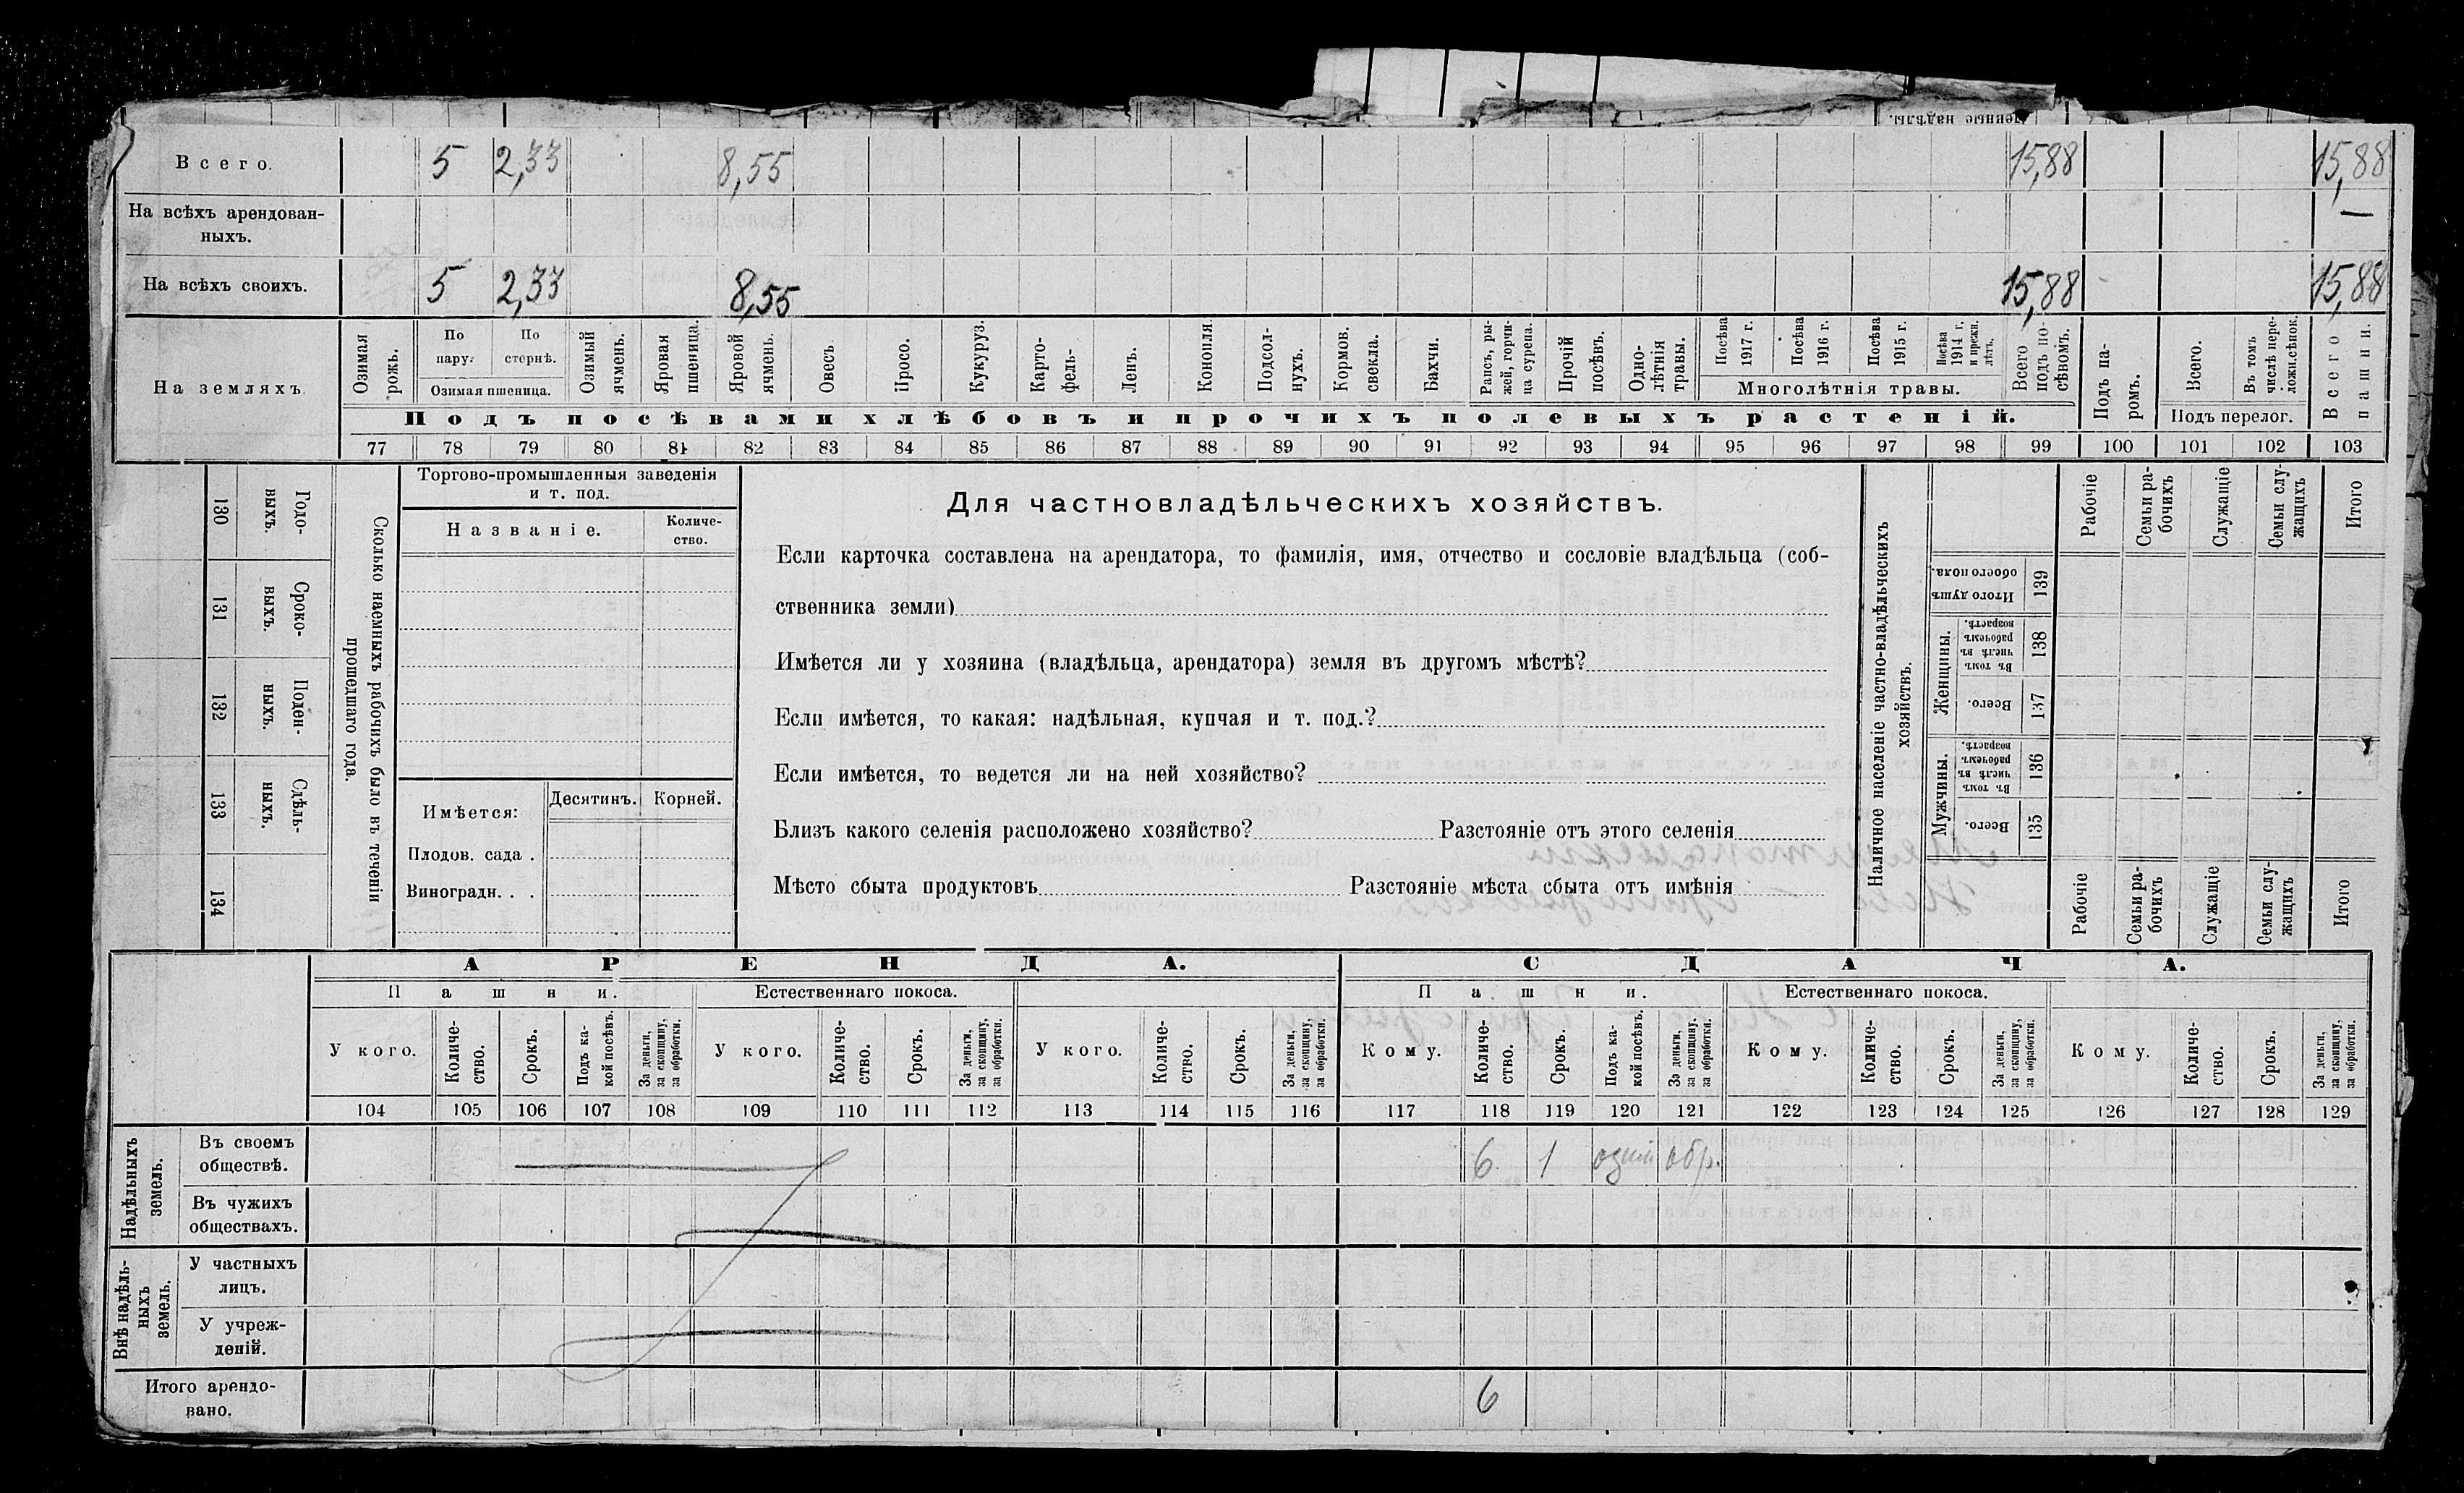 Всего. 5 2,33 8,55 15,88 15,88
На всѣхъ арендован-
ныхъ. —
На всѣхъ своихъ. 5 2,33 8,55 15,88 15,88
На земляхъ.
Озимая рожь.
По пару.
По стернѣ.
Озимая пшеница.
Озимый ячмень.
Яровая пшеница.
Яровой ячмень.
Овесъ.
Просо.
Кукуруз.
Карто-
фель-
Ленъ.
Конопля.
Подсол-
нухъ.
Кормов.
свекла.
Бахчи.
Рапсъ, ры-
жей, горчи-
ца сурепа.
Прочій
посѣвъ.
Одно-
лѣтнія
травы.
Посѣва
1917 г.
Посѣва
1916 г.
Посѣва
1915 г.
Посѣва
1914 г.
и прежн.
лѣтъ.
Многолѣтнія травы.
Всего
подъ по-
сѣвомъ.
Подъ па-
ромъ.
Всего.
Въ томъ
числѣ пере-
ложн.сѣнок.
Подъ перелог.
Всего
пашни.
Подъ посѣвами хлѣбовъ и прочихъ полевыхъ растеній.
77 78 79 80 81 82 83 84 85 86 87 88 89 90 91 92 93 94 95 96 97 98 99 100 101 102 103
130 Годо-
выхъ.
131 Сроко-
выхъ.
132 Поден-
ныхъ.
133 Сдѣль-
ныхъ.
134
Сколько наемныхъ рабочихъ было въ теченіи
прошедшаго года.
Торгово-промышленныя заведенія
и т. под.
Названіе.
Количе-
ство.
Имѣется:
Десятинъ. Корней.
Плодов. сада .
Виноградн. . .
Для частновладѣльческихъ хозяйствъ.
Если карточка составлена на арендатора, то фамилія, имя, отчество и сословіе владѣльца (соб-
ственника земли)
Имѣется ли у хозяина (владѣльца, арендатора) земля въ другомъ мѣстѣ?
Если имѣется, то какая: надѣльная, купчая и т. под.?
Если имѣется, то ведется ли на ней хозяйство?
Близъ какого селенія расположено хозяйство? Разстояніе отъ этого селенія
Мѣсто сбыта продуктовъ Разстояніе мѣста сбыта отъ имѣнія
Наличное населеніе частно-владѣльческихъ
хозяйствъ.
Рабочіе
Семьи ра-
бочихъ
Служащіе
Семьи слу-
жащихъ
Итого
Итого душъ
обоего пола.
139
Женщины.
Въ томъ
числѣ въ
рабочемъ
возрастѣ.
138
Всего.
137
Мужчины.
Въ томъ
числѣ въ
рабочемъ
возрастѣ.
136
Всего.
135
Рабочіе
Семьи ра-
бочихъ
Служащіе
Семьи слу-
жащихъ
Итого
АРЕНДА. СДАЧА.
Пашни. Естественнаго покоса. Пашни. Естественнаго покоса.
У кого.
Количе-
ство.
Срокъ.
Подъ ка-
кой посѣвъ.
За деньги,
за скопщину,
за обработки.
У кого.
Количе-
ство.
Срокъ.
За деньги,
за скопщину,
за обработки.
У кого.
Количе-
ство.
Срокъ.
За деньги,
за скопщину,
за обработки.
Кому.
Количе-
ство.
Срокъ.
Подъ ка-
кой посѣвъ.
За деньги,
за скопщину,
за обработки.
Кому.
Количе-
ство.
Срокъ.
За деньги,
за скопщину,
за обработки.
Кому.
Количе-
ство.
Срокъ.
За деньги,
за скопщину,
за обработки.
104 105 106 107 108 109 110 111 112 113 114 115 116 117 118 119 120 121 122 123 124 125 126 127 128 129
Надѣльныхъ
земель.
Въ своемъ
обществѣ. 6 1 обр.
Въ чужихъ
обществахъ.
Внѣ надѣль-
ныхъ
земель.
У частныхъ
лицъ.
У учреж-
деній.
Итого арендо-
вано. 6